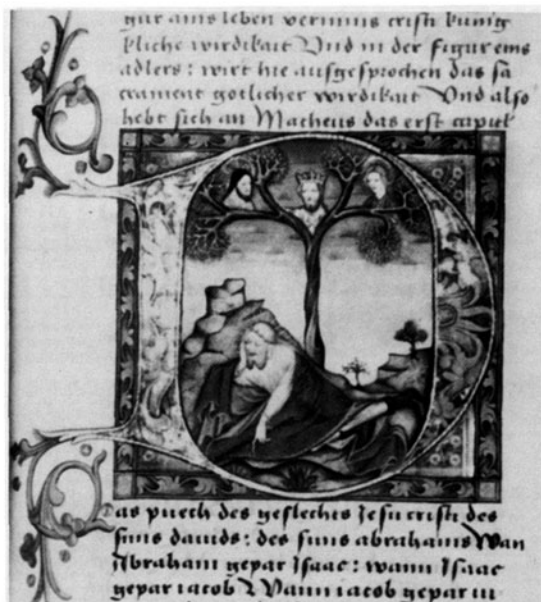 gur ains leben vernims cristi kunig
kliche wirdikait Vnd in der figur eins
adlers : wirt hie ausgesprochen das sa
crament gotlicher wirdikait Vnd also
hebt sich an Matheus das erst capitel
Das puech des geslechts Jesu cristi des
suns dauids : des suns abrahams Wan
Abraham gepar Isaac : wann Isaac
gepar iacob Wann iacob gepar iu